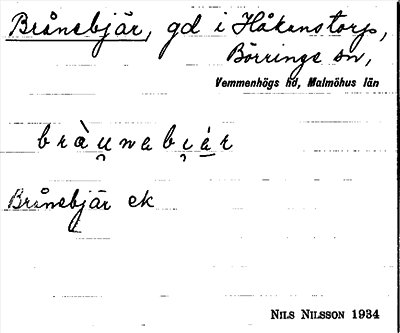 Brånebjär, gd i Håkanstorp,
Börringe sn,
Vemmenhögs hd, Malmöhus län
bràu̯nabi̯ár
Brånebjär ek
NILS NILSSON 1934